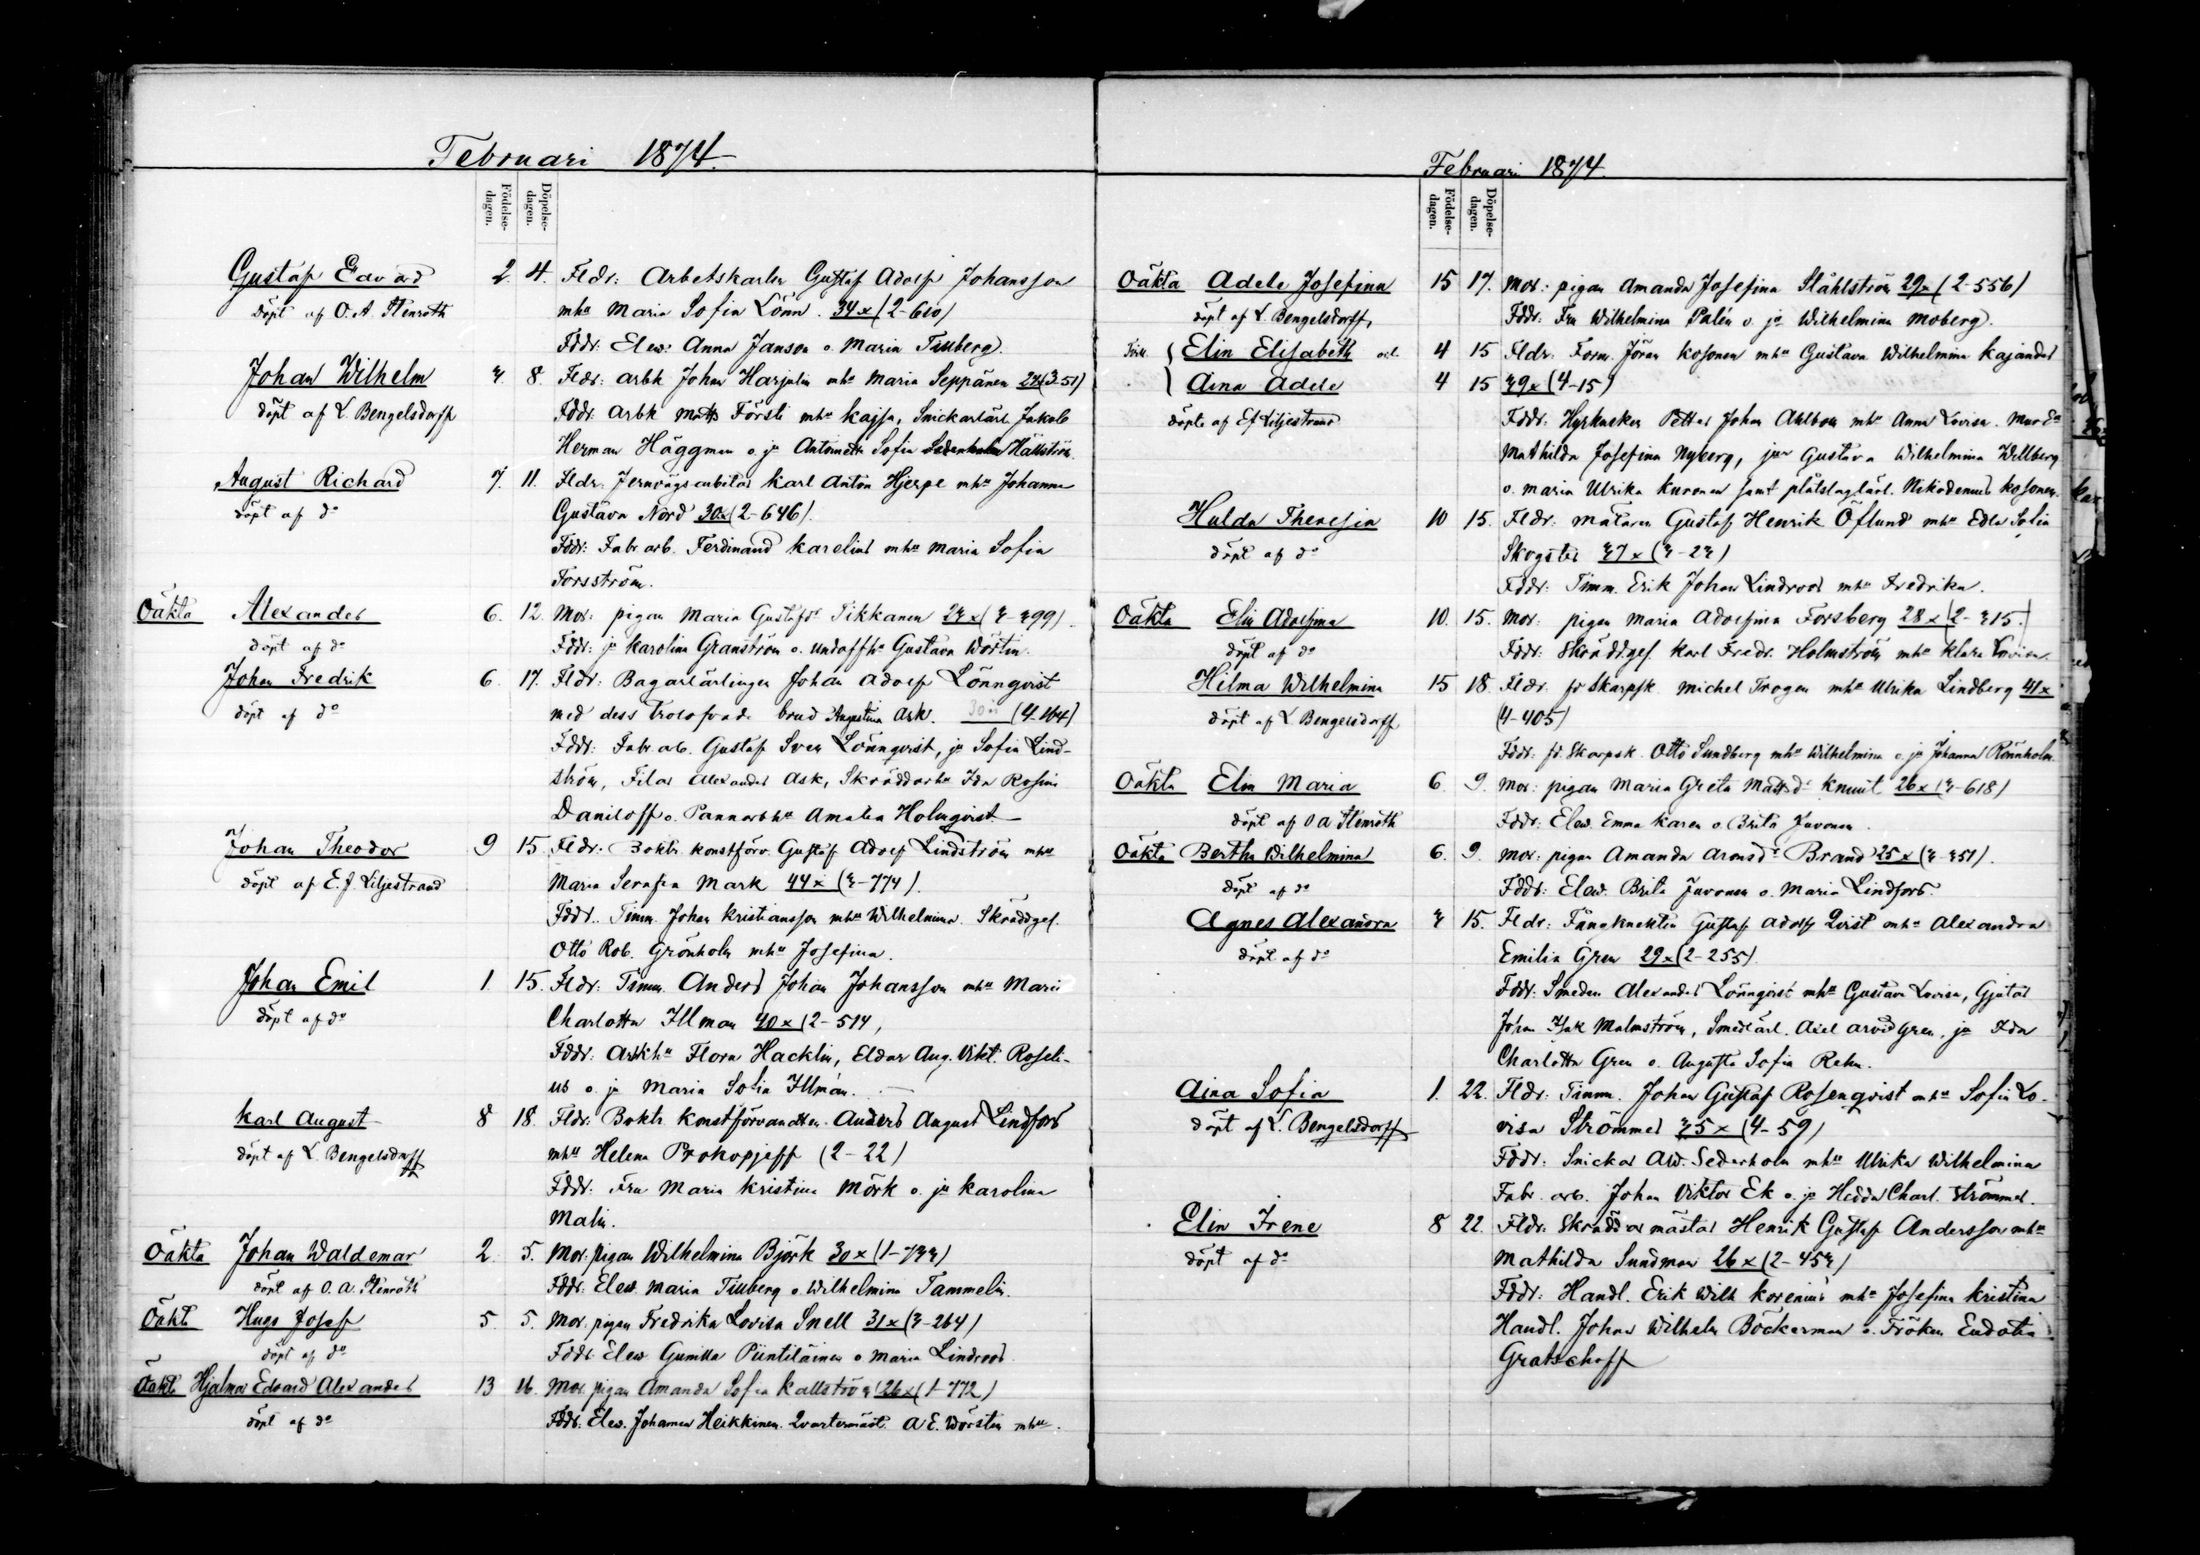 Februari 1874.
Födelse-dagen.
Döpelse-dagen.
Gustaf Edvard 2. 4. Fldr: Arbetskarlen Gustaf Adolf Johansson
döpt af O. A. Stenroth mhu Maria Sofia Lönn. 34 x (2-610)
Fddr. Elev: Anna Janson o. Maria Tiuberg.
Johan Wilhelm 3 8. Fldr: arbk Johan Harjulin mhu Maria Seppänen 24 (3-51)
döpt af L. Bengelsdorff Fddr. arbk Matts Försti mhu Kajsa, Snickarlärl. Jakob
Herman Häggman o. ja Antonetta Sofia Hällström.
August Richard 7. 11. Fldr. Jernvägsarbetar Karl Anton Hjerpe mhu Johanna
döpt af do Gustava Nord 30x (2-646).
Fddr: Fabr. arb. Ferdinand Karelius mhu Maria Sofia
Forsström.
Oäkta Alexander 6. 12. Mor: pigan Maria Gustafsdr Tikkanen 23 x (3-399).
döpt af do Fddr: ja Karolina Granström o. undoffhu Gustava Wörtin.
Johan Fredrik 6. 17. Fldr: Bagarlärlingen Johan Adolf Lönnqvist
döpt af do med dess trolofvade brud Augustina Ask. 30 (4-164)
Fddr: Fabr. arb. Gustaf Sven Lönnqvist, ja Sofia Lind-
ström, Filar Alexander Ask, Skräddarhu Ida Rosina
Daniloff o. Pannarbhu Amalia Holmqvist.
Johan Theodor 9 15. Fldr. Boktr. konstförv. Gustaf Adolf Lindström mhu
döpt af E. J. Liljestrand Maria Serafia Mark 44 x (3-774).
Fddr. Timm. Johan Kristiansson mhu Wilhelmina. Skräddges.
Otto Rob. Grönholm mhu Josefina.
Johan Emil 1. 15. Fldr: Timm. Anders Johan Johansson mhu Maria
döpt af do Charlotta Illman 40 x (2-514,
Fddr: Arbkhu Flora Hacklin, Eldar Aug. Vikt. Roseli-
us o. ja Maria Sofia Illman.
Karl August 8 18. Fldr: Boktr. konstförvandten Anders August Lindfors
döpt af L. Bengelsdorff mhu Helena Prokopjeff (2-22)
Fddr: Fru Maria Kristina Mörk o. ja Karolina
Malin.
Oäkta Johan Waldemar 2. 5. Mor. pigan Wilhelmina Björk 30 x (1-733)
döpt af O. A. Stenroth Fddr: Elev. Maria Tiuberg o. Wilhelmina Tammelin.
Oäkt. Hugo Josef 5. 5. Mor. pigan Fredrika Lovisa Snell 31 x (3-264)
döpt af do Fddr. Elev Gunilla Piintiläinen o Maria Lindroos
Oäkt. Hjalmar Edvard Alexander 13 16. Mor. pigan Amanda Sofia Kallström 26 x (1-772)
döpt af do Fddr. Elev. Johanna Heikkinen. Qvartermäst. A E. Wörstin mhu.
Februari 1874.
Födelse-dagen.
Döpelse-dagen.
Oäkta Adele Josefina 15 17. Mor: pigan Amanda Josefina Ståhlström 29x (2-556)
döpt af L. Bengelsdorff, Fddr: Fru Wilhelmina Palén o. ja Wilhelmina Moberg.
Elin Elisabeth och 4 15 Fldr: Form. Jöran Kosonen mhu Gustava Wilhelmina Kajander
Aina Adele 4 15 39 x (4-15)
döpte af Ef Liljestrand Fddr: Hyrkusken Petter Johan Ahlbom mhu Anna Lovisa.
Mathilda Josefina Nyberg, jun Gustava Wilhelmina Wellberg
o. Maria Ulrika Kuronen samt plåtslaglärl. Nikodemus Kosonen.
Hulda Theresia 10 15. Fldr: Mätaren Gustaf Henrik Öflund mhu Edla Sofia
döpt af do Skogster 37 x (3-23)
Fddr: Timm. Erik Johan Lindroos mhu Fredrika.
Oäkta Elin Adolfina 10. 15. Mor: pigan Maria Adolfina Forsberg 28 x (2-315.)
döpt af do Fddr: Skräddges. Karl Fredr. Holmström mhu Klara Lovisa.
Hilma Wilhelmina 15 18. Fldr. fd Skarpsk. Michel Trogen mhu Ulrika Lindberg 41 x
döpt af L Bengelsdorff (4-405)
Fddr. fd. Skarpsk. Otto Sundberg mhu Wilhelmina o. ja Johanna Rönnholm.
Oäkta Elin Maria 6. 9. Mor: pigan Maria Greta Mattsdr Knuut 26 x (3-618)
döpt af O A Stenroth Fddr: Elev. Emma Karen o. Brita Juvonen.
Oäkta Bertha Wilhelmina 6. 9. Mor: pigan Amanda Aronsdr Brand 25 x (3-351).
döpt af do Fddr: Elev. Brita Juvonen o. Maria Lindfors.
Agnes Alexandra 3 15. Fldr: Fångknekten Gustaf Adolf Qvist mhu Alexandra
döpt af do Emilia Gren 29 x (2-255).
Fddr: Smeden Alexander Lönnqvist mhu Gustava Lovisa, Gjutar
Johan Isak Malmström, Smedlärl. Axel Arvid Gren, ja Ida
Charlotta Gren o. Augusta Sofia Rehn.
Aina Sofia 1. 22. Fldr: Timm. Johan Gustaf Rosenqvist mhu Sofia Lo-
döpt af L. Bengelsdorff visa Strömmer 35 x (4-59)
Fddr: Snickar Alex. Sederholm mhu Ulrika Wilhelmina
Fabr. arb. Johan Viktor Ek o. ja Hedda Charl. Strömmer.
Elin Irene 8 22. Fldr. Skräddarmästar Henrik Gustaf Andersson mhu
döpt af do Mathilda Sundman 26 x (2-453)
Fddr: Handl. Erik Wilh Korenius mhu Josefina Kristina
Handl. Johan Wilhelm Böckerman o. Fröken Eudokia
Gratschoff